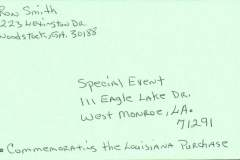 Ron Smith
223 Lexington Dr.
Woodstock, GA. 30188
Special Event
111 Eagle Lake Dr.
West Monroe, LA.
71291
• Commemorating the Louisiana Purchase